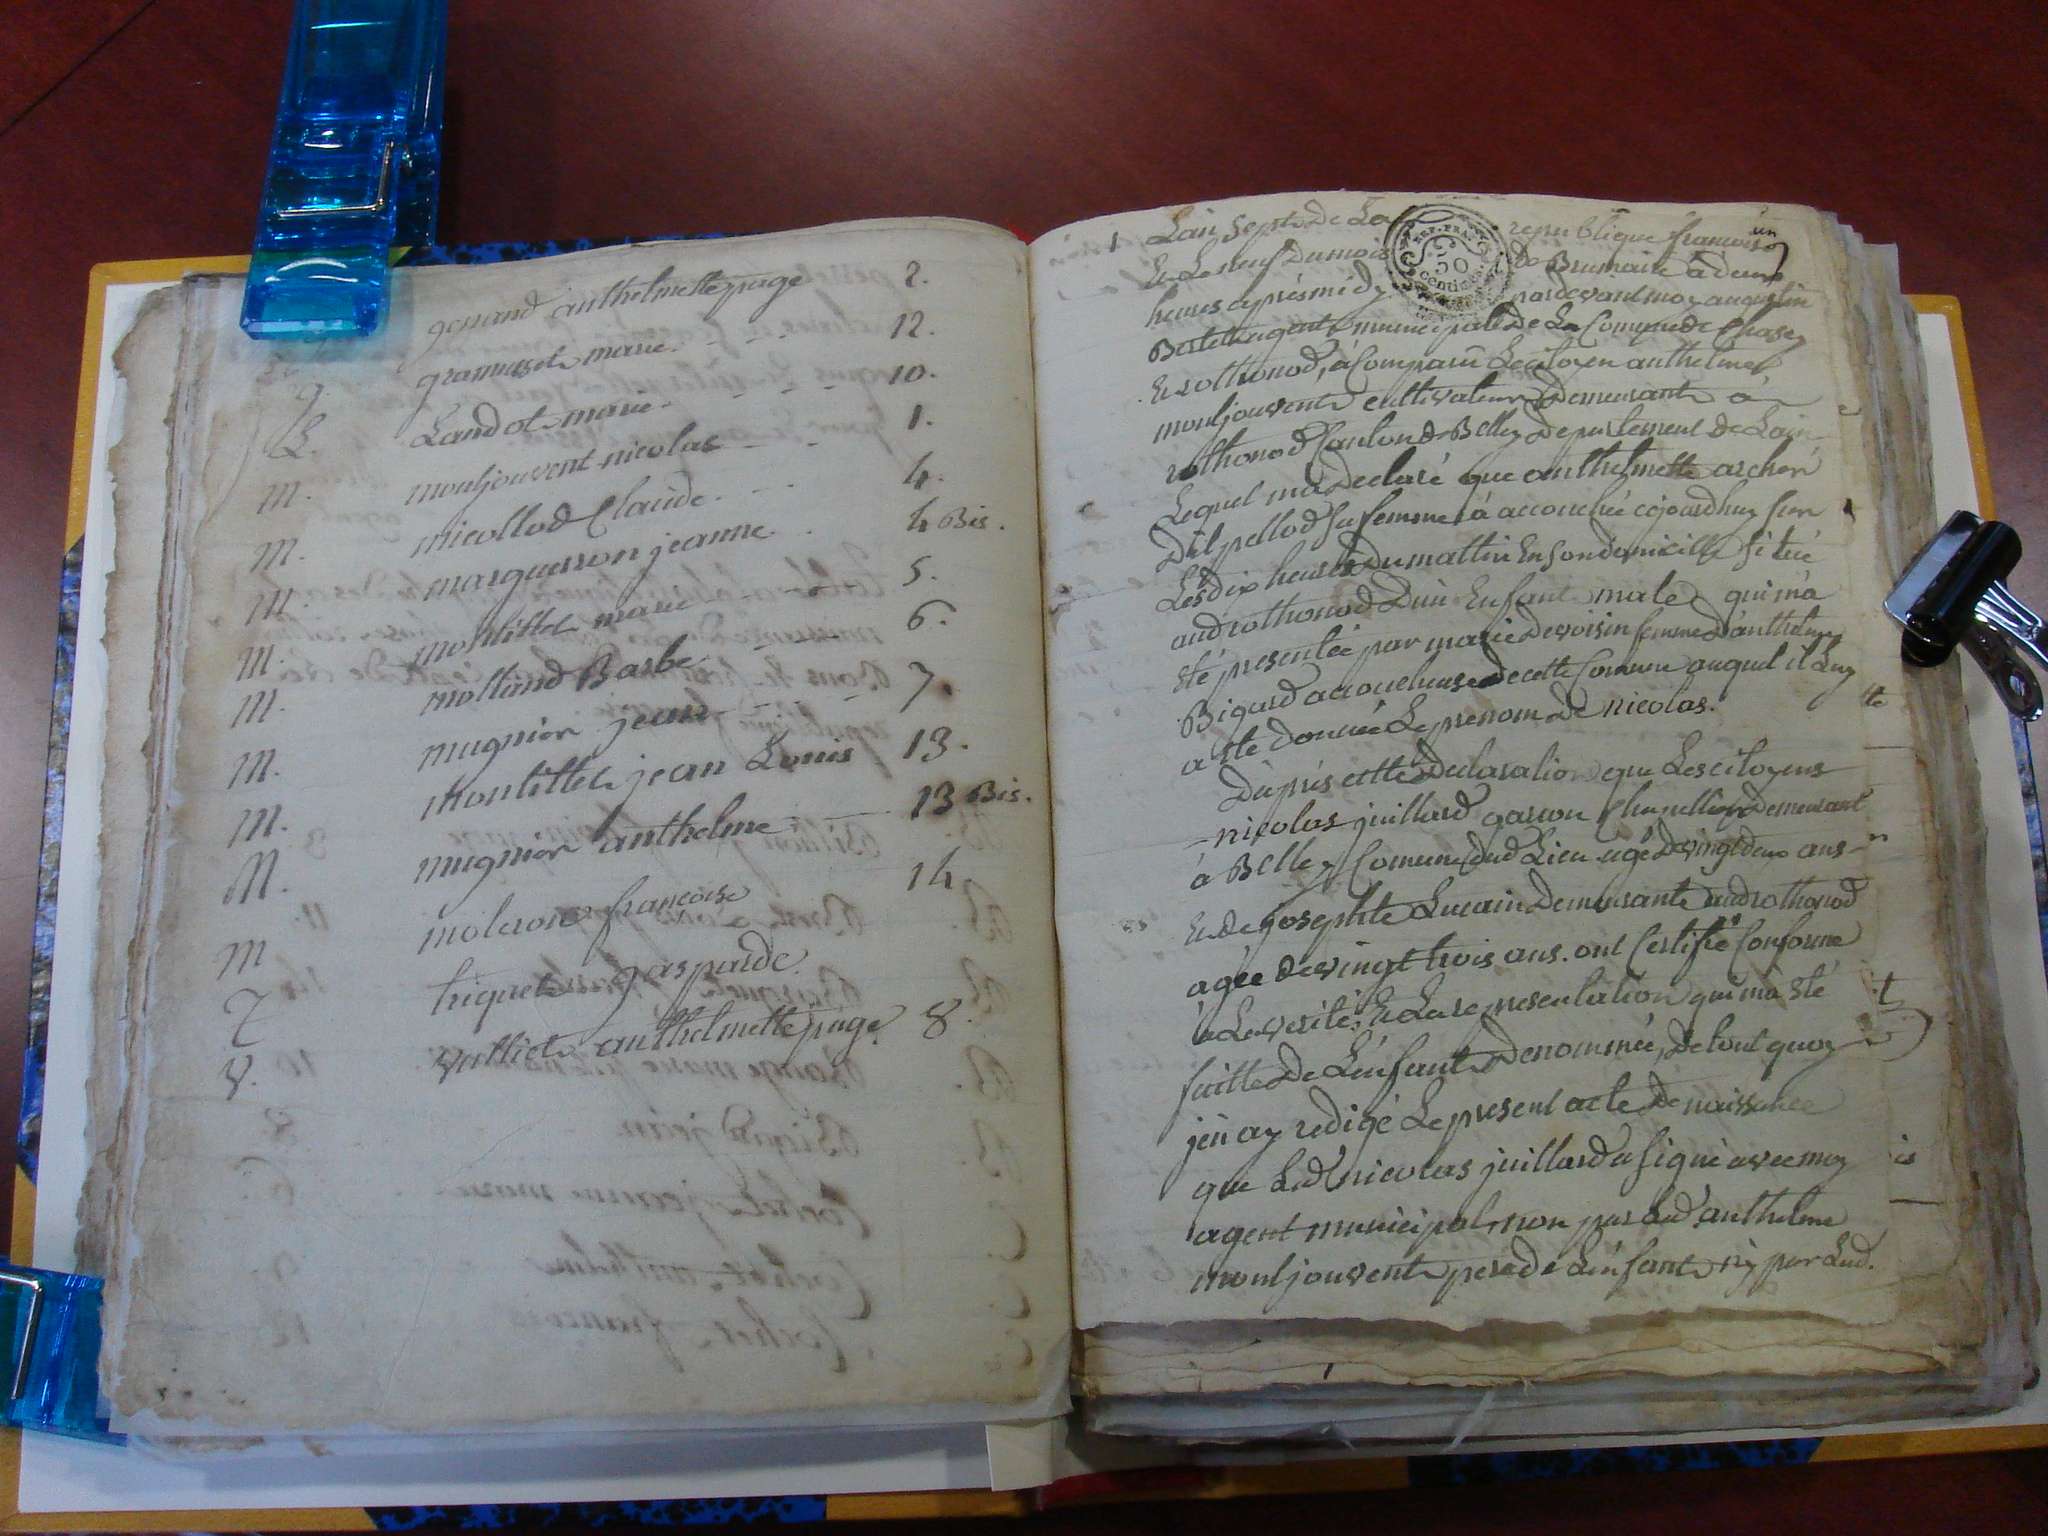 g. genand anthelmette page 2.
g. gramusset marie 12.
L. Landot marie 10.
M. montjouvent nicolas 1.
M. micollod Claude 4.
M. marguerron jeanne 4 Bis.
M. montillet marie 5.
M. molliand Barbe 6.
M. mugnier jean 7.
M. montillet jean Louis 13.
M. mugnier anthelme 13 Bis.
M molleron francoise 14
T triquet gasparde
V. valliet anthelmette page 8.
un
1 Lan Sept de La republique francoise
Et Le neuf du mois de Brumaire a deux
heures après midy pardevant moy augustin
Bertet agent municipal de La Comune de Chazey
Et rothonod, à Comparu Le citoyen anthelme
montjouvent cultivateur Demeurant à
rothonod Canton de Belley Departement de Lain
Lequel m'a Declaré que anthelmette archer
Dit pellod sa femme à accouchée cejourdhuy sur
Les dix heures Du mattin En son domicille situé
aud rothonod D'un Enfant male qui m'a
Eté presentée par marie Devoisin femme d'anthelme
Bigard accoucheuse de cette Comune auquel il Luy
a Eté donnée Le prenom de nicolas.
D'après cette Declaration que Les citoyens
nicolas juillard garcon Chapellier demeurant
à Belley Comune dud Lieu agé de vingt deux ans
Et de josephte Lucain Demeurante aud rothonod
agée de vingt trois ans. ont Certifié Conforme
à La verité, Et La representation qui m'a Eté
faitte De L'enfant Denommée, De tout quoy
j'en ay redigé Le present acte De naissance
que Led nicolas juillard a signé avec moy
agent municipal non par Led anthelme
montjouvent pere de L'enfant ny par Lad.
REP. FRA.
50
Centimes